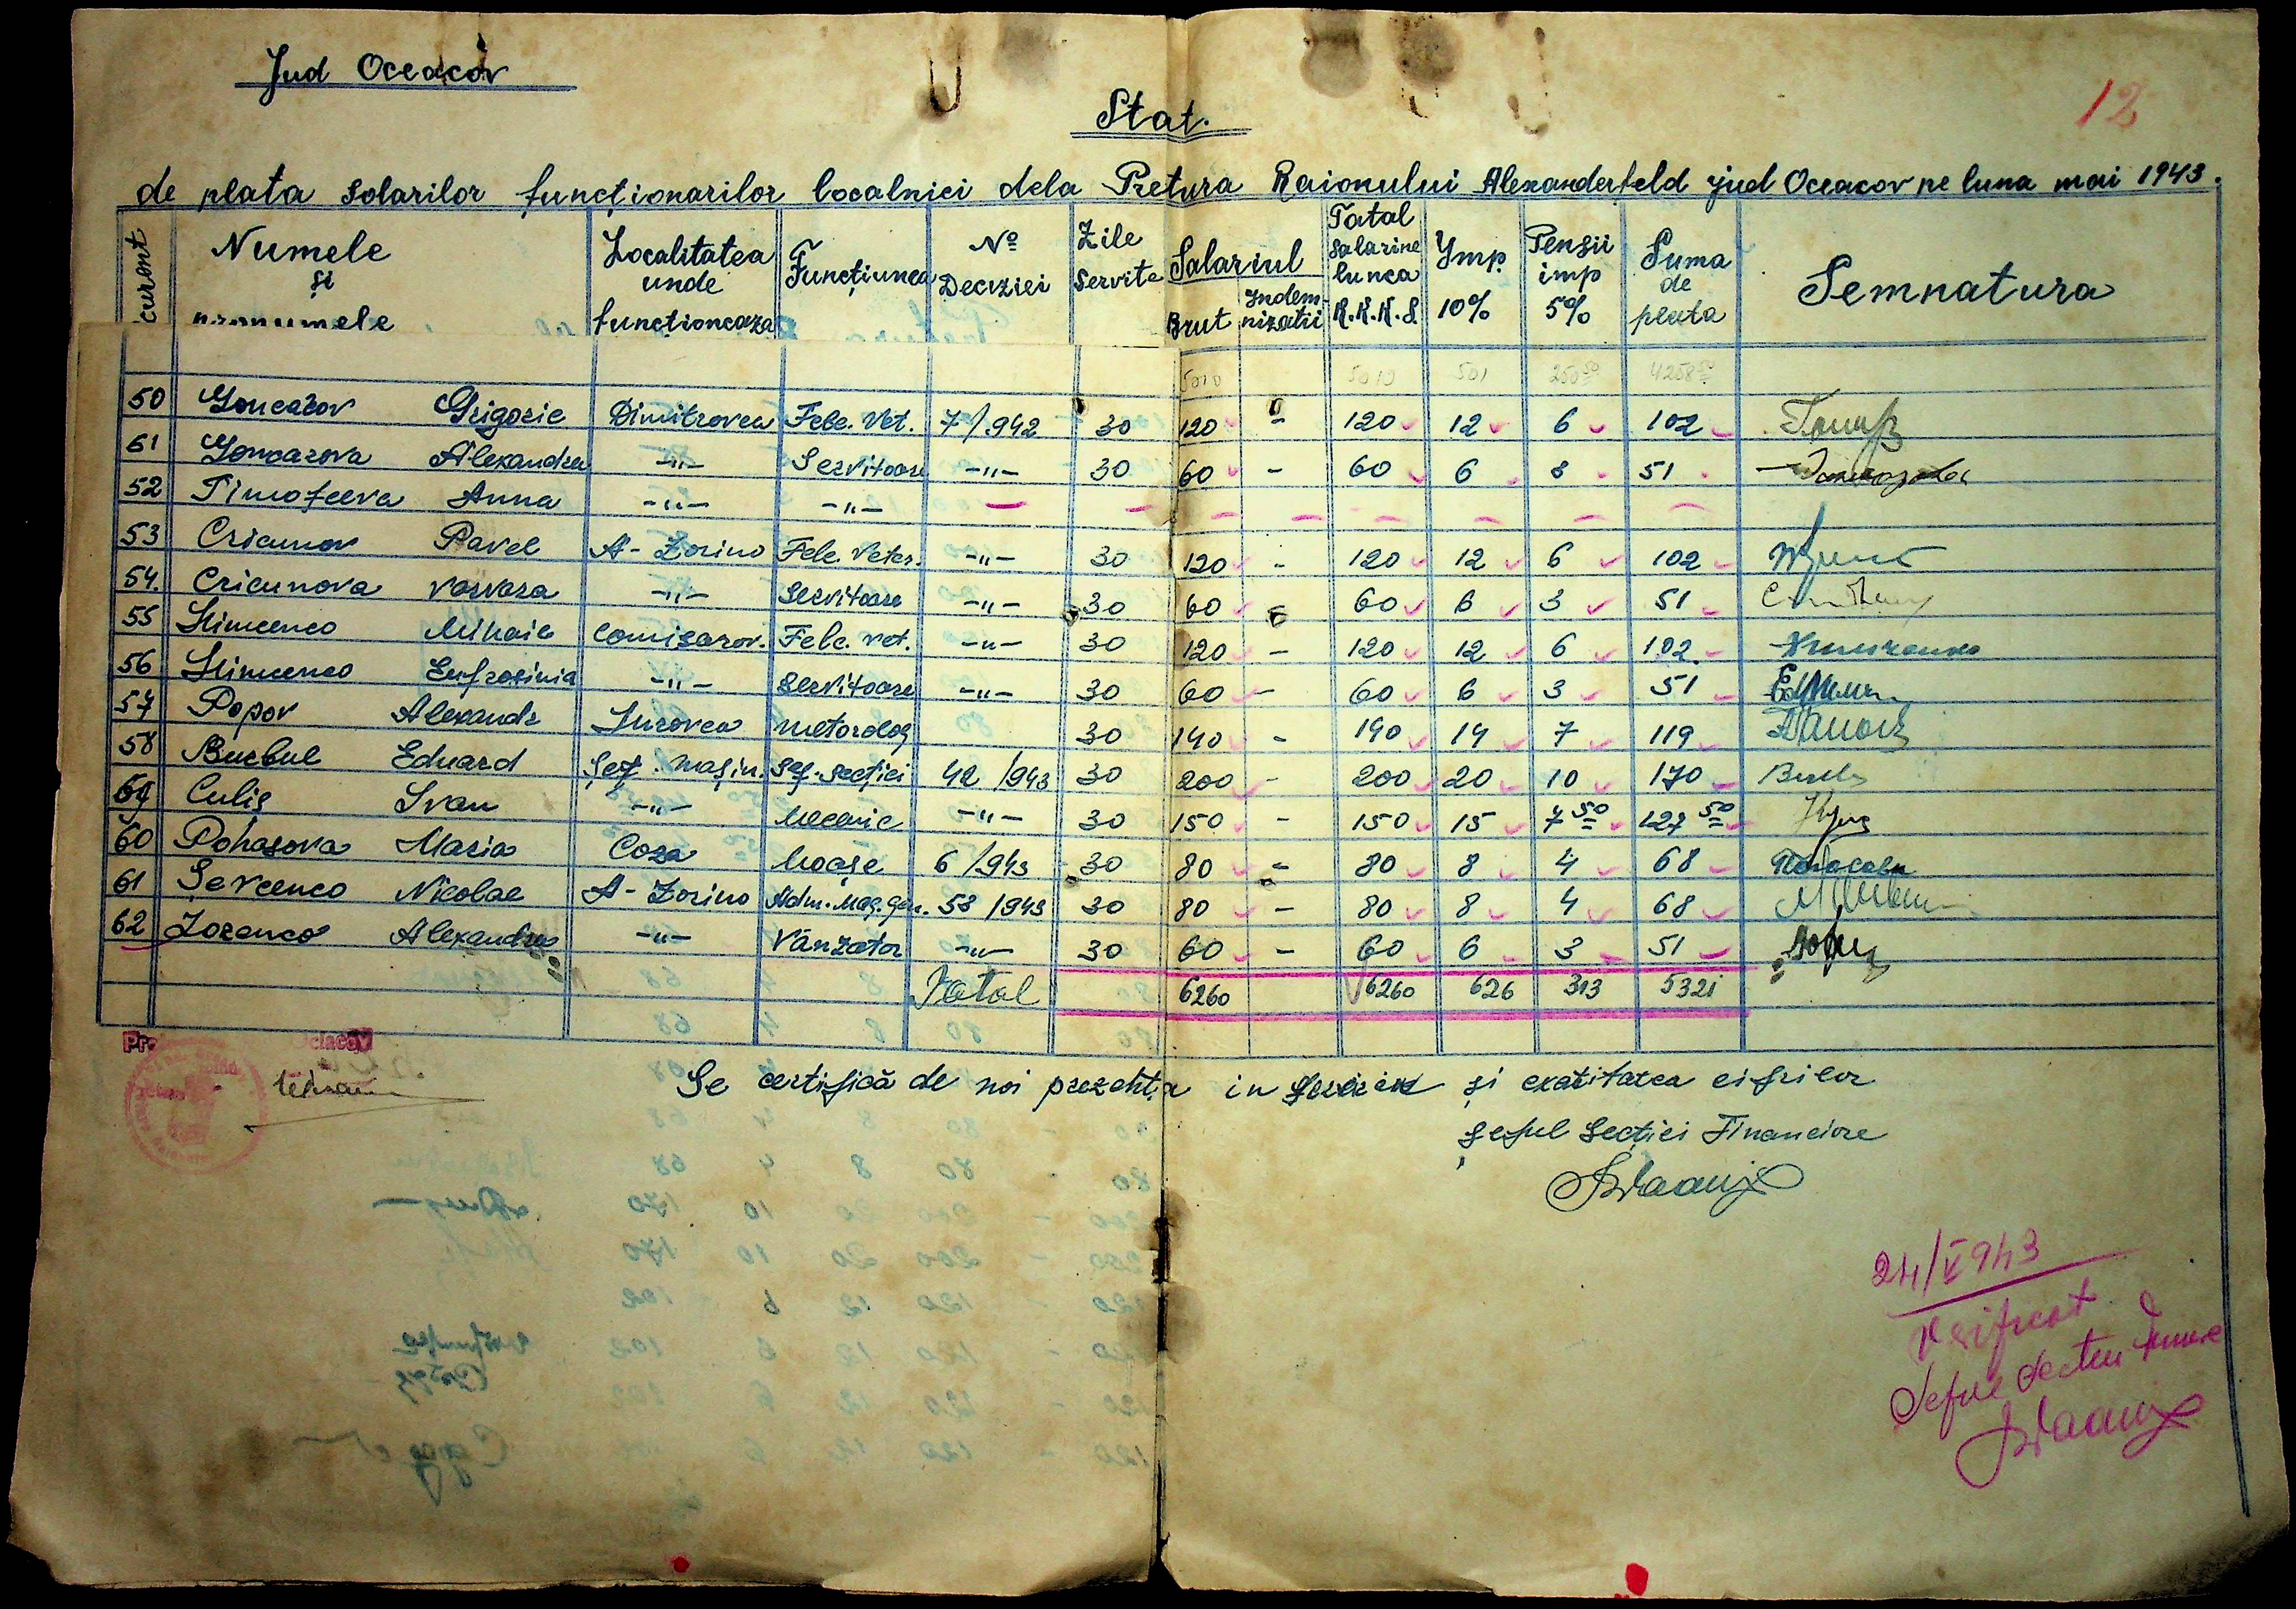 Jud Oceacov
12
Stat.
de plata solarilor funcționarilor localnici dela Pretura Raionului Alexanderfeld jud Oceacov pe luna mai 1943.
curent | Numele și pronumele | Localitatea unde functioneaza | Funcțiunea | No Deciziei | Zile Servite | Salariul Brut | Indemnizatii | Total Salarine lunca R.K.K.S | Ymp. 10% | Pensii imp 5% | Suma de plata | Semnatura
5010 | 5010 | 501 | 250 50 | 4258 50
50 Goncarov Grigorie Dimitrovca Felc. Vet. 7/.942 30 120 - 120 12 6 102
51 Goncarova Alexandra -"- Servitoare -"- 30 60 - 60 6 3 51
52 Timofeeva Anna -"- -"- - - - - - - - -
53 Cricunov Pavel A-Zorino Felc. Veter. -"- 30 120 - 120 12 6 102
54. Cricunova Varvara -"- Servitoare -"- 30 60 - 60 6 3 51
55 Himcenco Mihail Comisarov. Felc. vet. -"- 30 120 - 120 12 6 102
56 Himcenco Eufrosinia -"- Servitoare -"- 30 60 - 60 6 3 51
57 Popov Alexandr Surovca metorolog 30 140 - 140 14 7 119
58 Burbul Eduard Șef. mașin. șef. secției 42/943 30 200 - 200 20 10 170
59 Culiș Ivan -"- Mecanic -"- 30 150 - 150 15 7 50 127 50
60 Pohasova Maria Cosa Moașe 6/943 30 80 - 80 8 4 68
61 Șevcenco Nicolae A-Zorino Adm. Mag. gen. 53/943 30 80 - 80 8 4 68
62 Lozenco Alexandra -"- Vânzator -"- 30 60 - 60 6 3 51
Total 6260 6260 626 313 5321
Se certifică de noi prezenta in serviciu și exatitatea cifrilor
Șeful Secției Financiare
24/V 943
Verificat